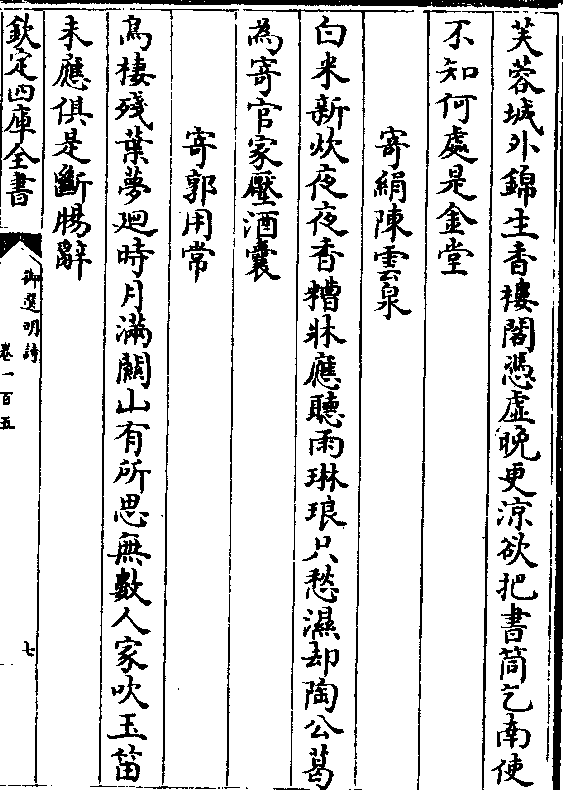 芙蓉城外錦生香樓閣憑虛晚更涼欲把書筒乞南使
不知何處是金堂
寄絹陳雲泉
白米新炊夜夜香糟牀應聽雨琳琅只愁濕却陶公葛
為寄官家壓酒囊
寄郭用常
髙棲殘葉夢廻時月滿關山有所思無數人家吹玉笛
未應俱是斷腸辭
欽定四庫全書
御選明詩
卷一百五
七